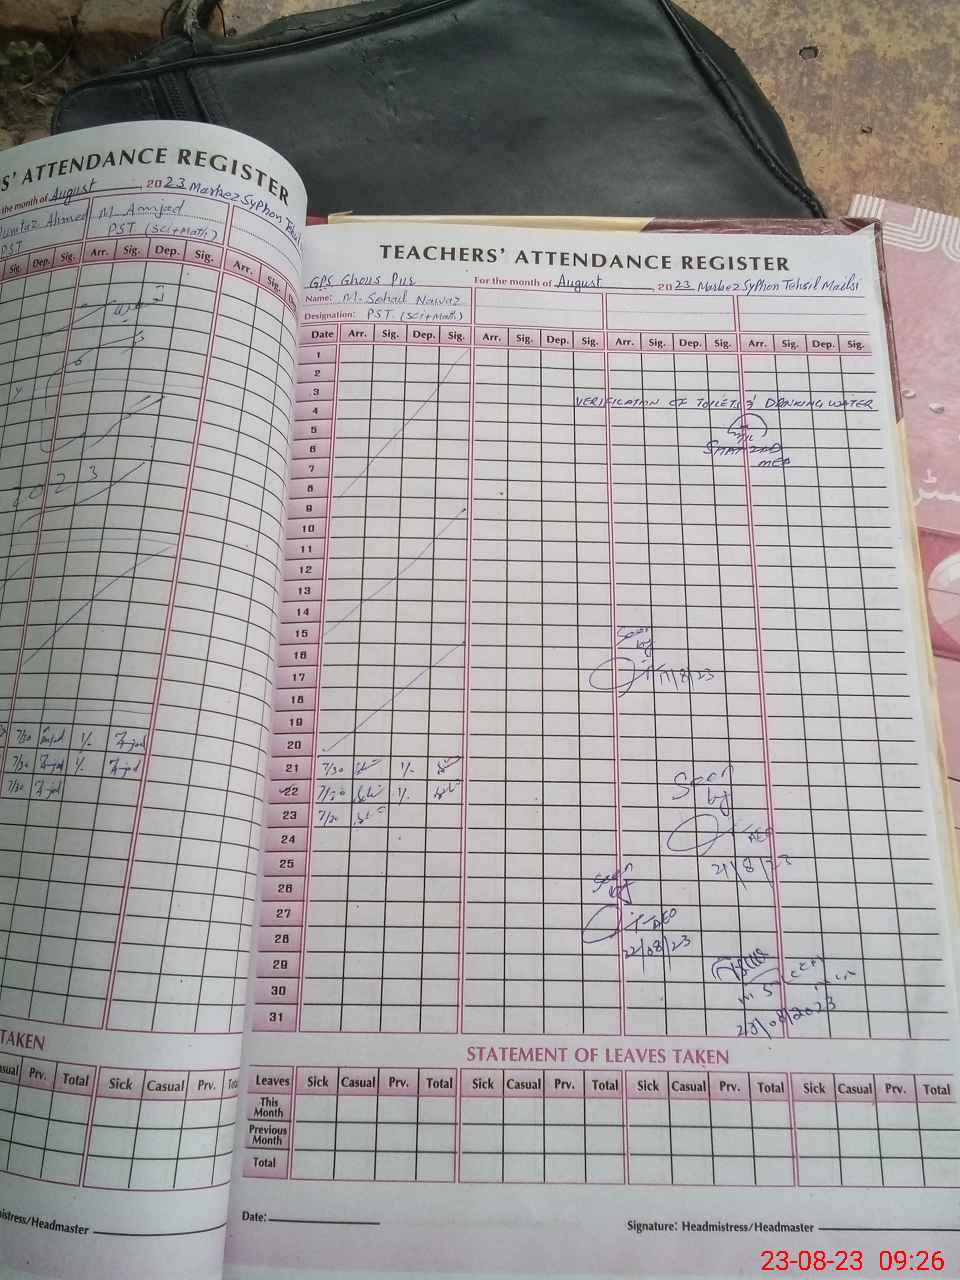 S' ATTENDANCE REGISTER
the month of August, 2023 Markez Syphon
Mumtaz Ahmed M. Amjad
PST PST (Sci+Math)
Sig. Dep. Sig. Arr. Sig. Dep. Sig. Arr. Sig.
2023
7/30 Amjad 1/- Amjad
7/30 Amjad 1/- Amjad
7/30 Amjad
TAKEN
Casual Prv. Total Sick Casual Prv. Total
mistress/Headmaster
TEACHERS' ATTENDANCE REGISTER
GPS Ghous Pur For the month of August, 2023 Markez Syphon Tehsil Mailsi
Name: M. Sohail Nawaz
Designation: PST. (Sci+Math)
Date Arr. Sig. Dep. Sig. Arr. Sig. Dep. Sig. Arr. Sig. Dep. Sig. Arr. Sig. Dep. Sig.
1
2
3
VERIFICATION OF TOILETS & DRINKING WATER
4
5
6
MEA
7
8
9
10
11
12
13
14
15
Seen
16
by
17
17/8/23
18
19
20
21 7/30 1/-
Seen
22 7/30 1/-
by
23 7/30
24
AEO
25
21/8/23
26
Seen
by
27
AEO
28
22/08/23
29
30
31
23/08/2023
STATEMENT OF LEAVES TAKEN
Leaves Sick Casual Prv. Total Sick Casual Prv. Total Sick Casual Prv. Total Sick Casual Prv. Total
This
Month
Previous
Month
Total
Date:
Signature: Headmistress/Headmaster
23-08-23 09:26